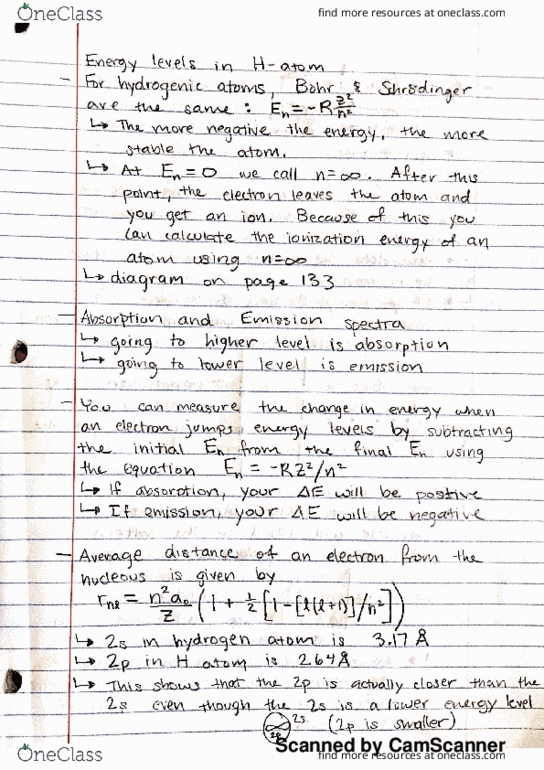 OneClass
find more resources at oneclass.com
Energy levels in H-atom
- For hydrogenic atoms, Bohr & Schrödinger
are the same: En = -R Z²/n²
↳ The more negative the energy, the more
stable the atom.
↳ At En = 0 we call n=∞. After this
point, the electron leaves the atom and
you get an ion. Because of this you
can calculate the ionization energy of an
atom using n=∞
↳ diagram on page 133
- Absorption and Emission spectra
↳ going to higher level is absorption
↳ going to lower level is emission
- You can measure the change in energy when
an electron jumps energy levels by subtracting
the initial En from the final En using
the equation En = -RZ²/n²
↳ If absorption, your ΔE will be postive
↳ If emission, your ΔE will be negative
- Average distance of an electron from the
nucleous is given by
rnℓ = n²a₀/Z (1 + ½ [1 - [ℓ(ℓ+1)]/n²])
↳ 2s in hydrogen atom is 3.17 Å
↳ 2p in H atom is 2.64 Å
↳ This shows that the 2p is actually closer than the
2s even though the 2s is a lower energy level
2s (2p is smaller)
2p
Scanned by CamScanner
OneClass
find more resources at oneclass.com